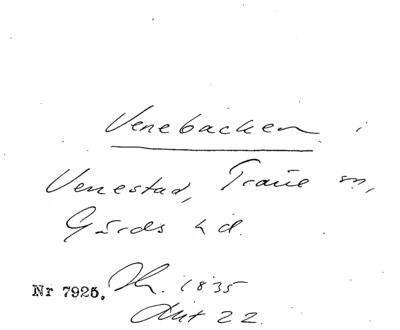 Venebacken i
Venestad, Träne sn,
Gärds hd.
Nr 7925. Lh. 1835
Akt 22.